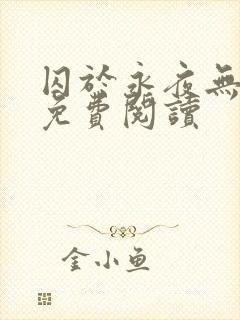 囚於永夜無
免費閱讀
金小魚